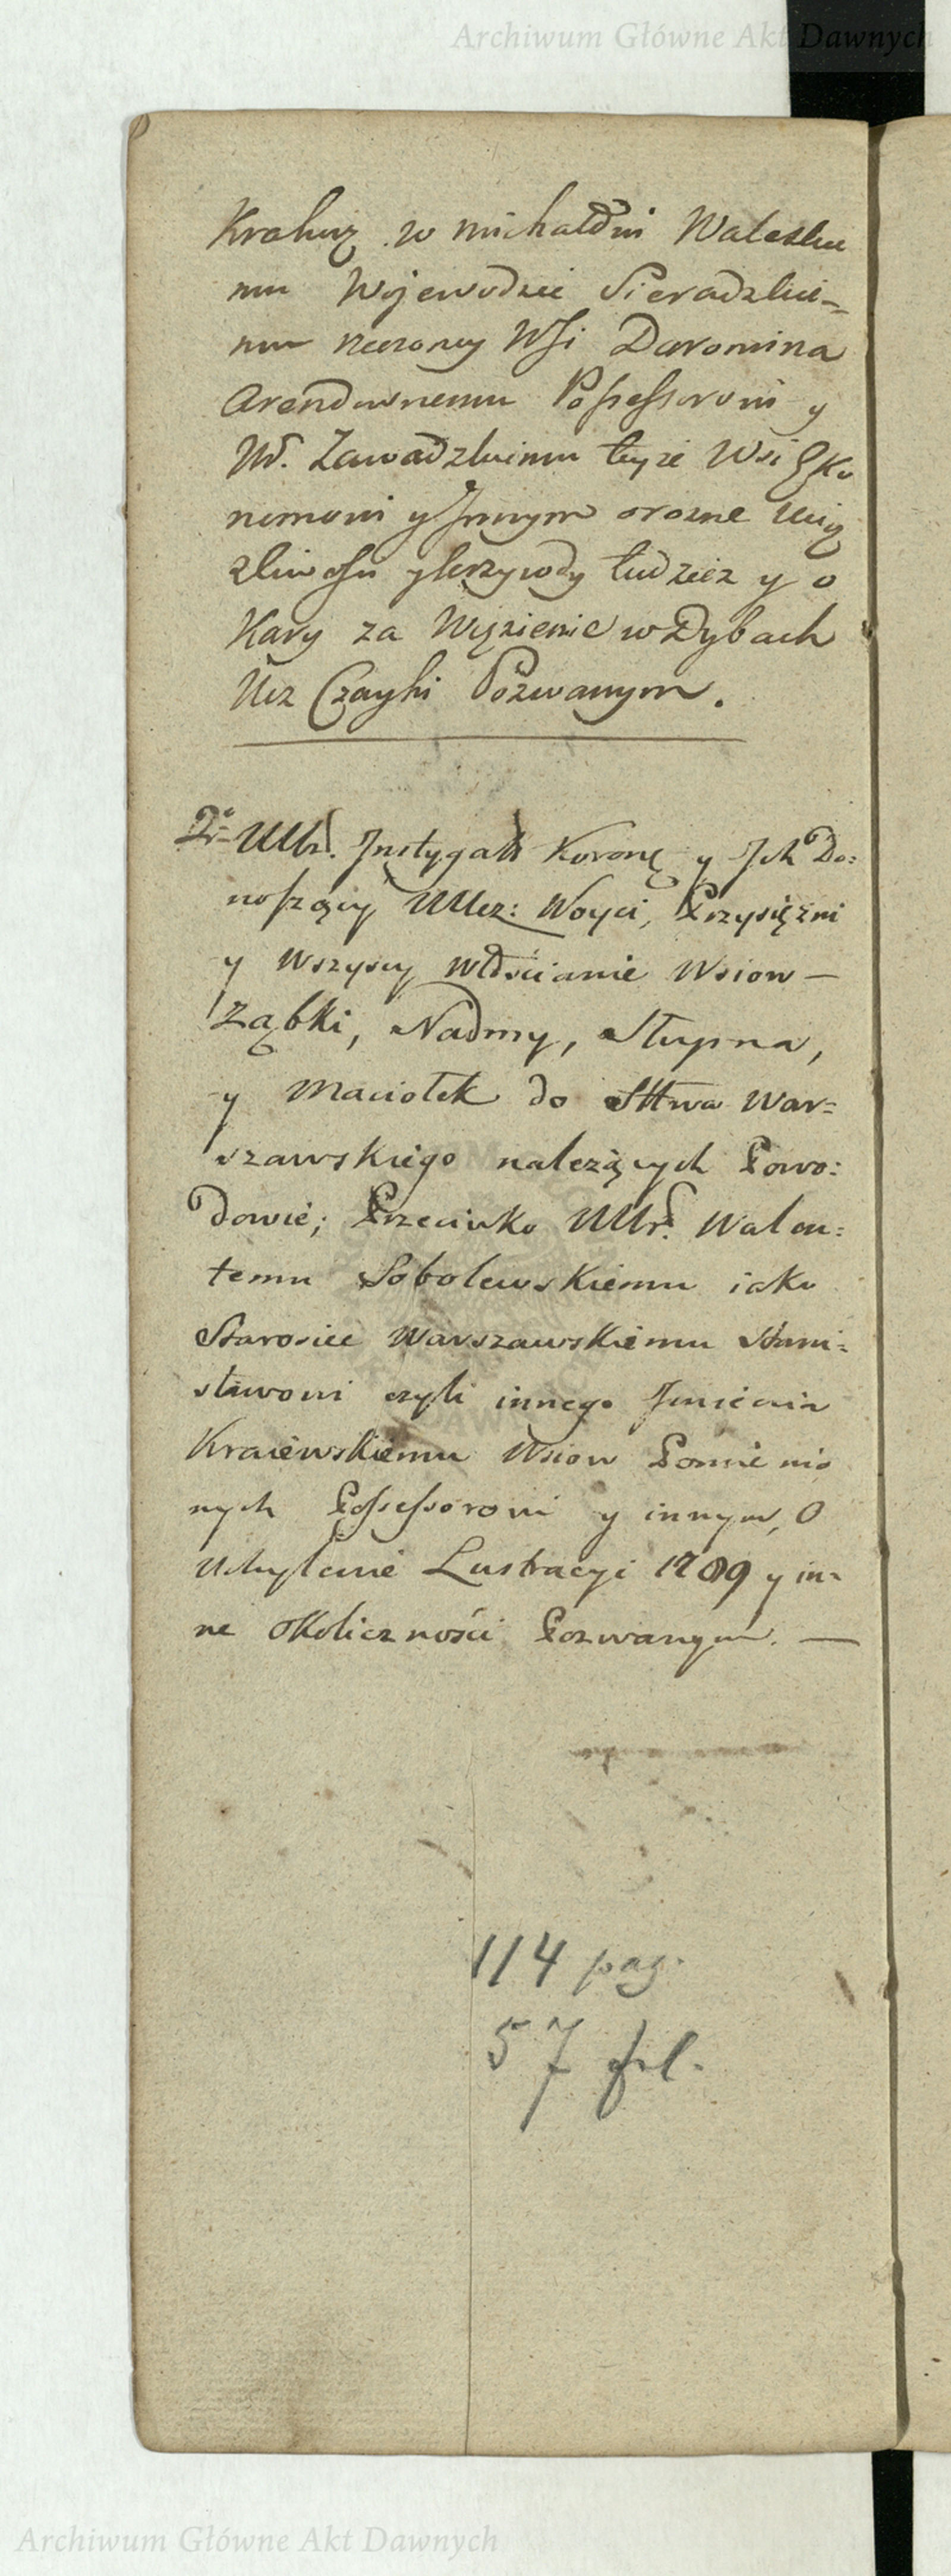 Archiwum Główne Akt Dawnych
w Michałowi Waleskie
mu Wojewodzie Sieradzkie-
mu rzeczoney Wsi Daromina
Arendownemu Possessorowi y
Ur. Zawadzkiemu teyże Wsi Eko
nomowi y Innym o rozne Ucią
zliwosci y krzywdy tudzież y o
Kary za Więzienie w Dybach
Ucz Czayki Pozwanym.
2º Instygat Korony y Ich Do:
noszący Ucz: Woyci, Przysiężni
y Wszyscy Włścianie Wsiow —
Ząbki, Nadmy, Słupna,
y Maciołek do Sttwa War=
szawskiego należących Powo:
dowie; Przeciwko Ur. Walen:
temu Sobolewskiemu iako
Staroscie Warszawskiemu Stani:
sławowi czyli innego Imienia
Kraiewskiemu Wsiow Pomienio
nych Possessorowi y innym, O
Uchylenie Lustracyi 1789 y in-
ne okoliczności Pozwanym. —
114 pag.
57 fol.
Archiwum Główne Akt Dawnych